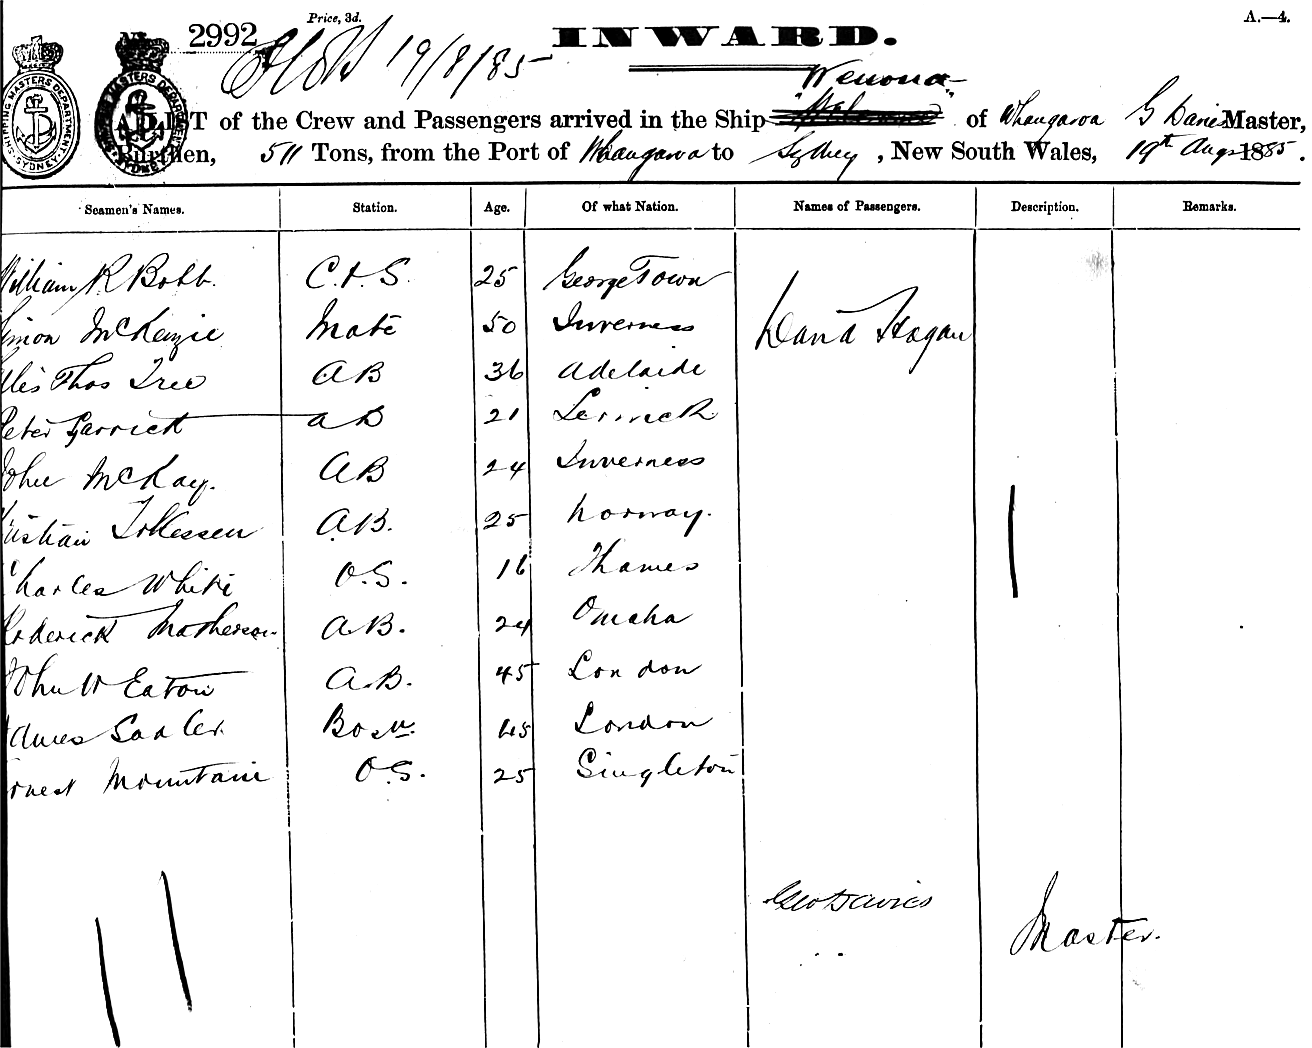 A.—4.
Price, 3d.
No. 2992
19/8/85
INWARD.
SHIPPING MASTERS DEPARTMENT SYDNEY
Wenona
A LIST of the Crew and Passengers arrived in the Ship of Whangaroa G Davies Master,
Burthen, 511 Tons, from the Port of Whangaroa to Sydney, New South Wales, 19th Augs 1885.
Seamen's Names. Station. Age. Of what Nation. Names of Passengers. Description. Remarks.
William R Bobb. C & S. 25 George Town
Simon McKenzie Mate 50 Inverness David Hagan
Thos Tree AB 36 Adelaide
Peter Garrick AB 21 Lerwick
John McKay. AB 24 Inverness
A.B. 25 Norway.
Charles White O.S. 16 Thames
Roderick Matheson A.B. 24 Omaha
John W Eaton A.B. 45 London
James Sadler. Bosn. 45 London
Ernest Mountain O.S. 25 Singleton
Geo Davies
Master.